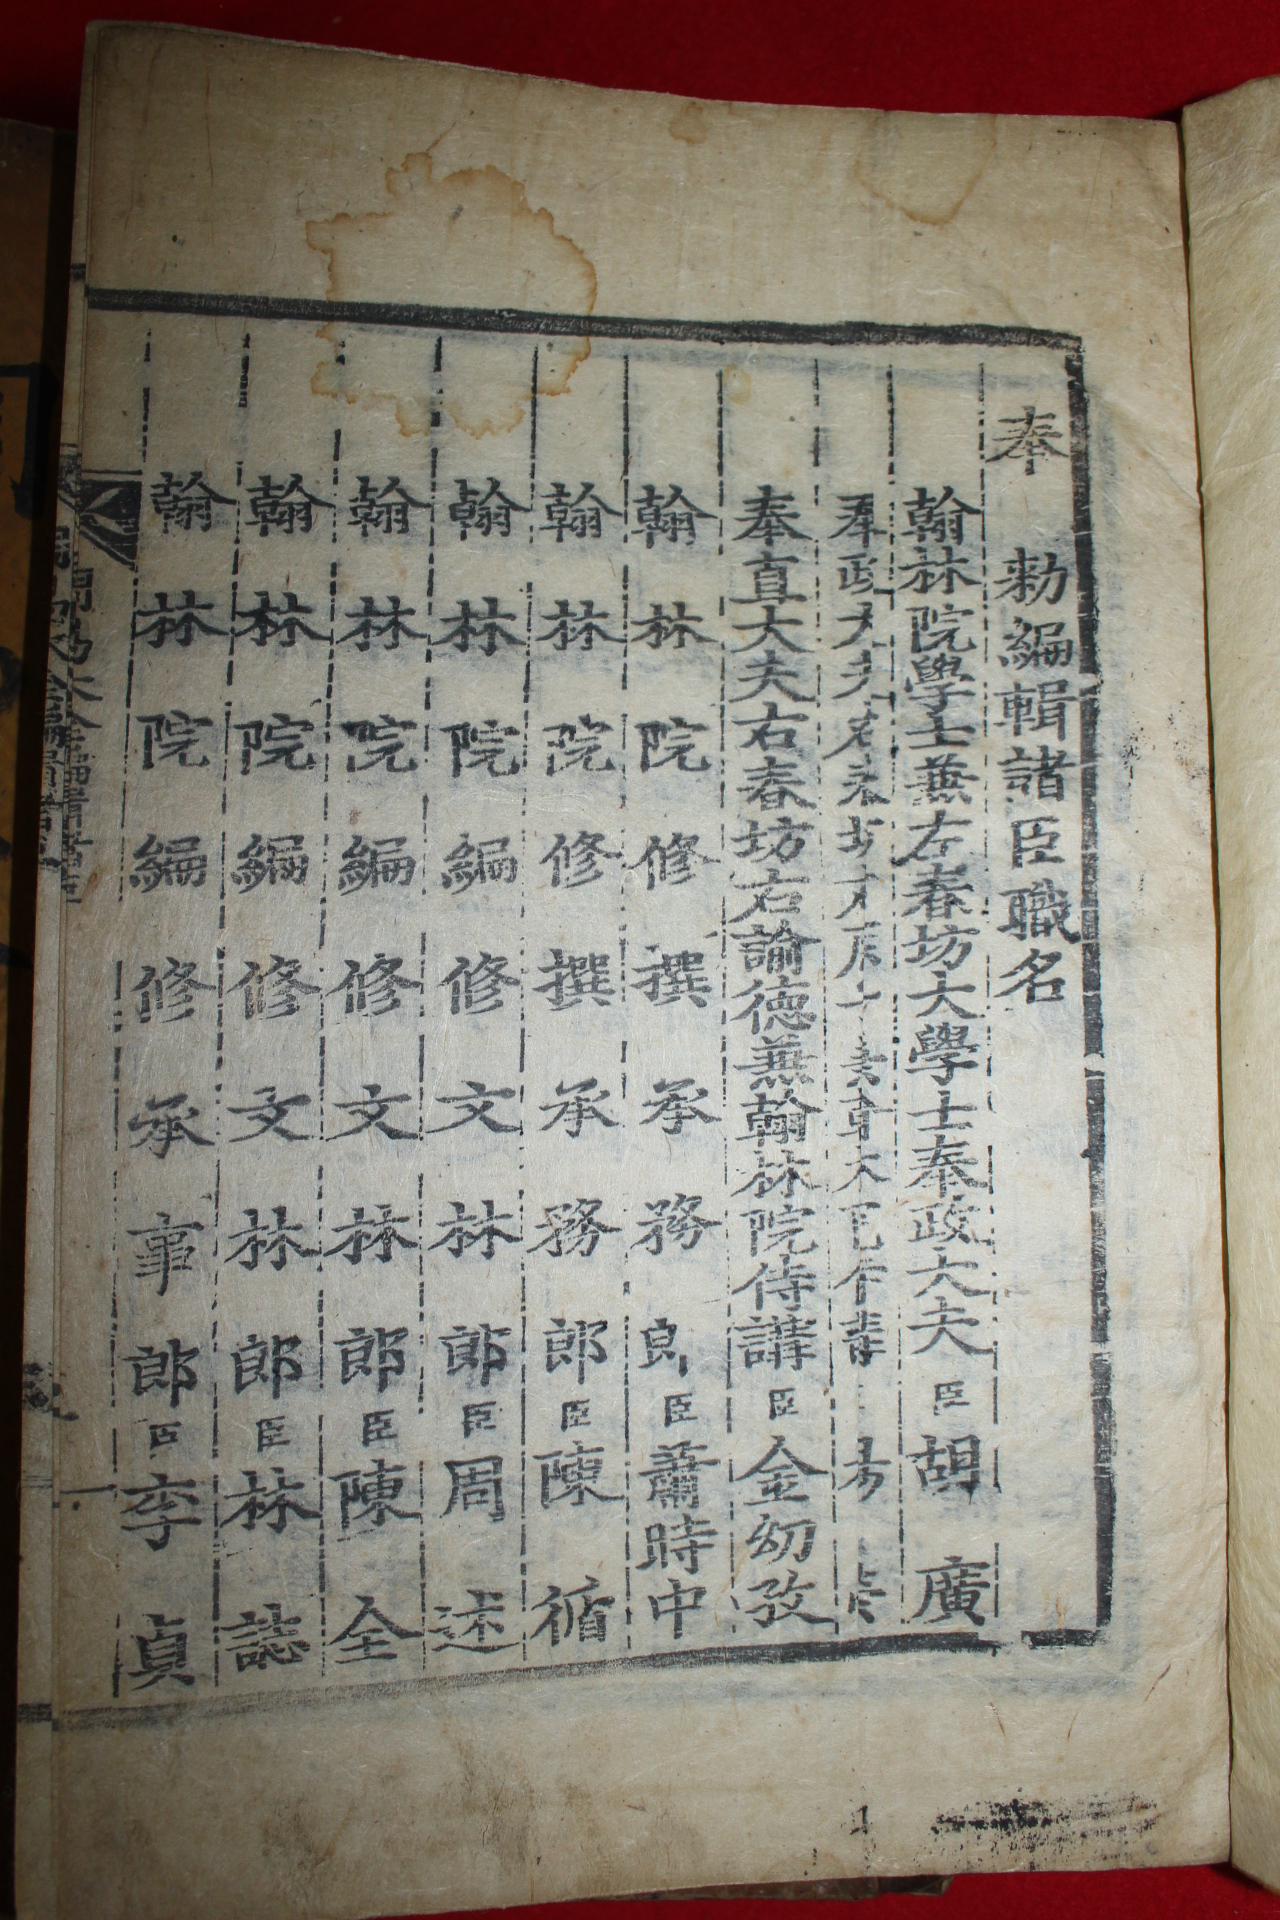 奉 勑編輯諸臣職名
翰林院學士兼左春坊大學士奉政大夫臣胡 廣
奉政大夫右春坊右庶子兼翰林院侍講臣楊 榮
奉直大夫右春坊右諭德兼翰林院侍講臣金幼孜
翰林院修撰承務郎臣蕭時中
翰林院修撰承務郎臣陳 循
翰林院編修文林郎臣周 述
翰林院編修文林郎臣陳 全
翰林院編修文林郎臣林 誌
翰林院編修承事郎臣李 貞